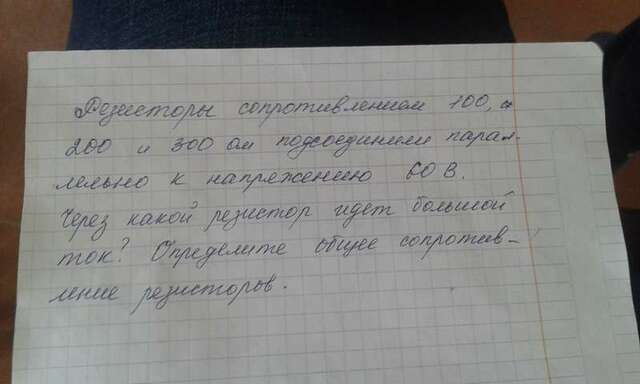 Резисторы сопротивлением 100,
200 и 300 ом подсоединили парал-
лельно к напряжению 60 В.
Через какой резистор идет большой
ток? Определите общее сопротив-
ление резисторов.